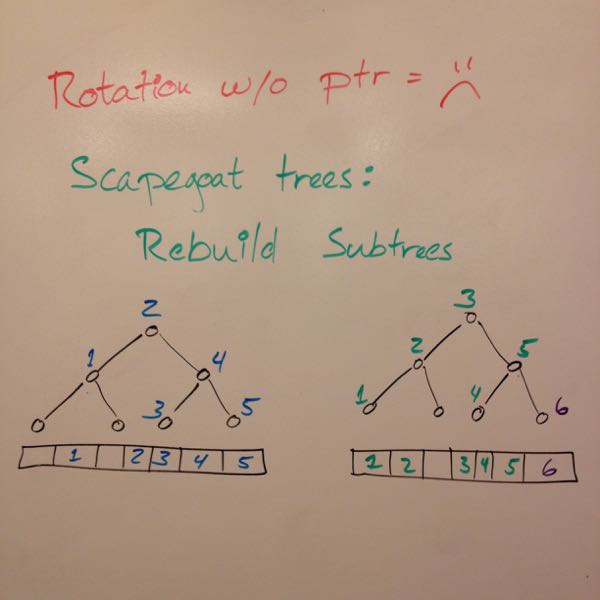 Rotation w/o ptr = :(
Scapegoat trees:
Rebuild Subtrees
2
1 4
3 5
1 2 3 4 5
3
2 5
1 4 6
1 2 3 4 5 6